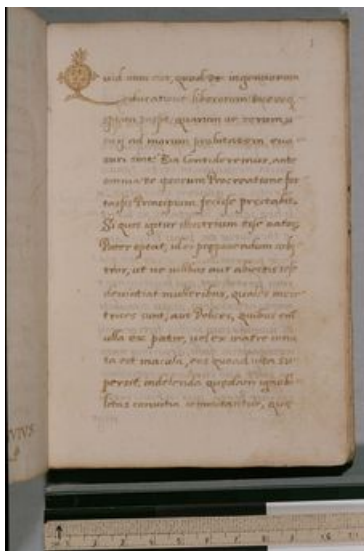 Quid nam est, quod de ingenuorum
educatione liberorum dicere
quispiam possit, quarum ue rerum u
su ij ad morum probitatem eua
suri sint? Ea Consideremus, ante
omnia de ipsorum Procreatione for
tassis Principium fecisse prestabit.
Si quis igitur illustrium esse natorum
Pater optat, illi preponendum arbi
tror, ut ne uilibus aut abiectis sese
deuinciat mulieribus, quales mere
trices sunt, aut Pelices, quibus enim
ulla ex patre, uel ex matre inna
ta est macula, eos quoad uita su
persit, indelenda quedam ignobi
litatis conuitia comitantur, que